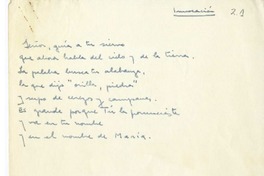 Invocación 21
Señor, guía a tu siervo
que ahora habla del cielo y de la tierra.
La palabra busca tu alabanza,
la que dijo "orilla, piedra"
y supo de cuerpos y campanas.
Es grande porque Tú la pronunciaste
y va en tu nombre
y en el nombre de María.